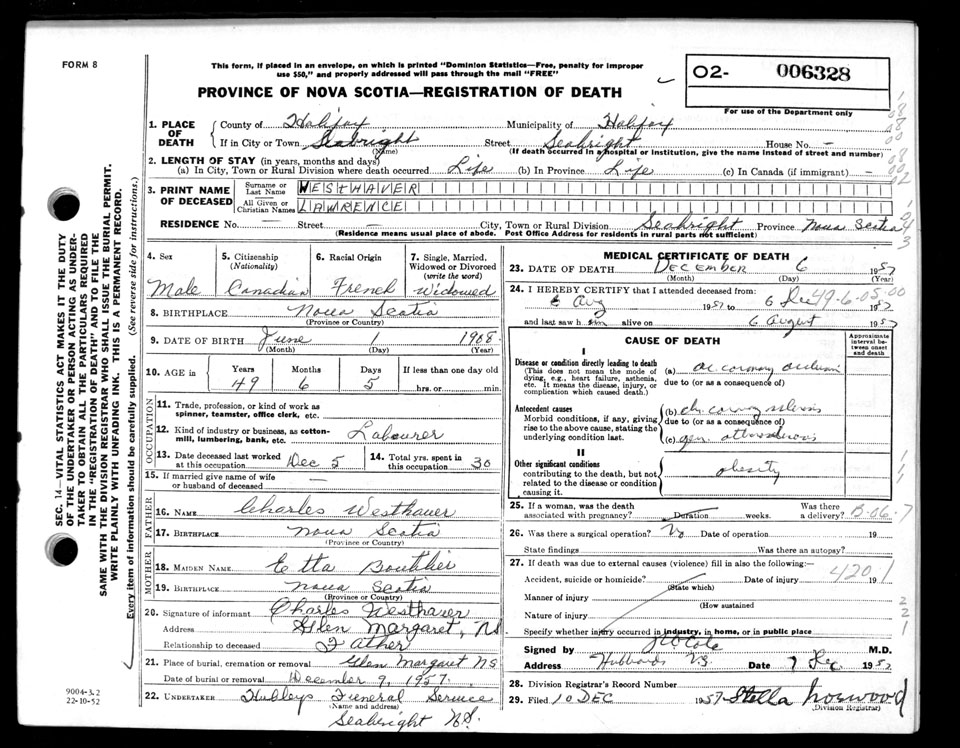 FORM 8
This form, if placed in an envelope, on which is printed "Dominion Statistics—Free, penalty for improper
use $50," and properly addressed will pass through the mail "FREE"
O2- 006328
PROVINCE OF NOVA SCOTIA—REGISTRATION OF DEATH
For use of the Department only
1. PLACE OF DEATH
County of Halifax Municipality of Halifax
If in City or Town Seabright Street Seabright House No. -
(Name) (If death occurred in a hospital or institution, give the name instead of street and number)
2. LENGTH OF STAY (in years, months and days)
(a) In City, Town or Rural Division where death occurred Life (b) In Province Life (c) In Canada (if immigrant) -
3. PRINT NAME OF DECEASED
Surname or Last Name WESTHAVER
All Given or Christian Names LAWRENCE
RESIDENCE No. — Street — City, Town or Rural Division Seabright Province Nova Scotia
(Residence means usual place of abode. Post Office Address for residents in rural parts not sufficient)
SEC. 14—VITAL STATISTICS ACT MAKES IT THE DUTY
OF THE UNDERTAKER OR PERSON ACTING AS UNDER-
TAKER TO OBTAIN ALL THE PARTICULARS REQUIRED
IN THE "REGISTRATION OF DEATH" AND TO FILE THE
SAME WITH THE DIVISION REGISTRAR WHO SHALL ISSUE THE BURIAL PERMIT.
WRITE PLAINLY WITH UNFADING INK. THIS IS A PERMANENT RECORD.
Every item of information should be carefully supplied. (See reverse side for instructions.)
4. Sex
Male
5. Citizenship
(Nationality)
Canadian
6. Racial Origin
French
7. Single, Married,
Widowed or Divorced
(write the word)
Widowed
8. BIRTHPLACE Nova Scotia
(Province or Country)
9. DATE OF BIRTH June 1 1908
(Month) (Day) (Year)
10. AGE in
Years Months Days If less than one day old
49 6 5 hrs. or min.
OCCUPATION
11. Trade, profession, or kind of work as
spinner, teamster, office clerk, etc.
12. Kind of industry or business, as cotton-
mill, lumbering, bank, etc. Labourer
13. Date deceased last worked
at this occupation Dec 5
14. Total yrs. spent in
this occupation 30
15. If married give name of wife
or husband of deceased —
FATHER
16. NAME Charles Westhaver
17. BIRTHPLACE Nova Scotia
(Province or Country)
MOTHER
18. MAIDEN NAME Etta Boutilier
19. BIRTHPLACE Nova Scotia
(Province or Country)
20. Signature of informant Charles Westhaver
Address Glen Margaret, NS
Relationship to deceased Father
21. Place of burial, cremation or removal Glen Margaret NS
Date of burial or removal December 9, 1957.
22. UNDERTAKER Hubleys Funeral Service
(Name and address)
Seabright NS.
9004-3.2
22-10-52
MEDICAL CERTIFICATE OF DEATH
23. DATE OF DEATH DECEMBER 6 1957
(Month) (Day) (Year)
24. I HEREBY CERTIFY that I attended deceased from:
6 Aug 1957 to 6 Dec 1957
49-6-05-00
and last saw him alive on 6 August 1957
CAUSE OF DEATH
Approximate
interval be-
tween onset
and death
I
Disease or condition directly leading to death
(This does not mean the mode of
dying, e.g., heart failure, asthenia,
etc. It means the disease, injury, or
complication which caused death.)
(a) ac coronary occlusion
due to (or as a consequence of)
Antecedent causes
Morbid conditions, if any, giving
rise to the above cause, stating the
underlying condition last.
(b) chr coronary sclerosis
due to (or as a consequence of)
(c) gen. atherosclerosis
II
Other significant conditions
contributing to the death, but not
related to the disease or condition
causing it.
obesity
25. If a woman, was the death
associated with pregnancy? Duration weeks. Was there
a delivery? B-06-7
26. Was there a surgical operation? No Date of operation 19
State findings Was there an autopsy?
27. If death was due to external causes (violence) fill in also the following:—
Accident, suicide or homicide? Date of injury 19
(State which)
420.1
Manner of injury
(How sustained)
Nature of injury
Specify whether injury occurred in industry, in home, or in public place
Signed by M.D.
Address Hubbards NS. Date 7 Dec 1957
28. Division Registrar's Record Number
29. Filed 10 DEC 1957 Stella Norwood
(Division Registrar)